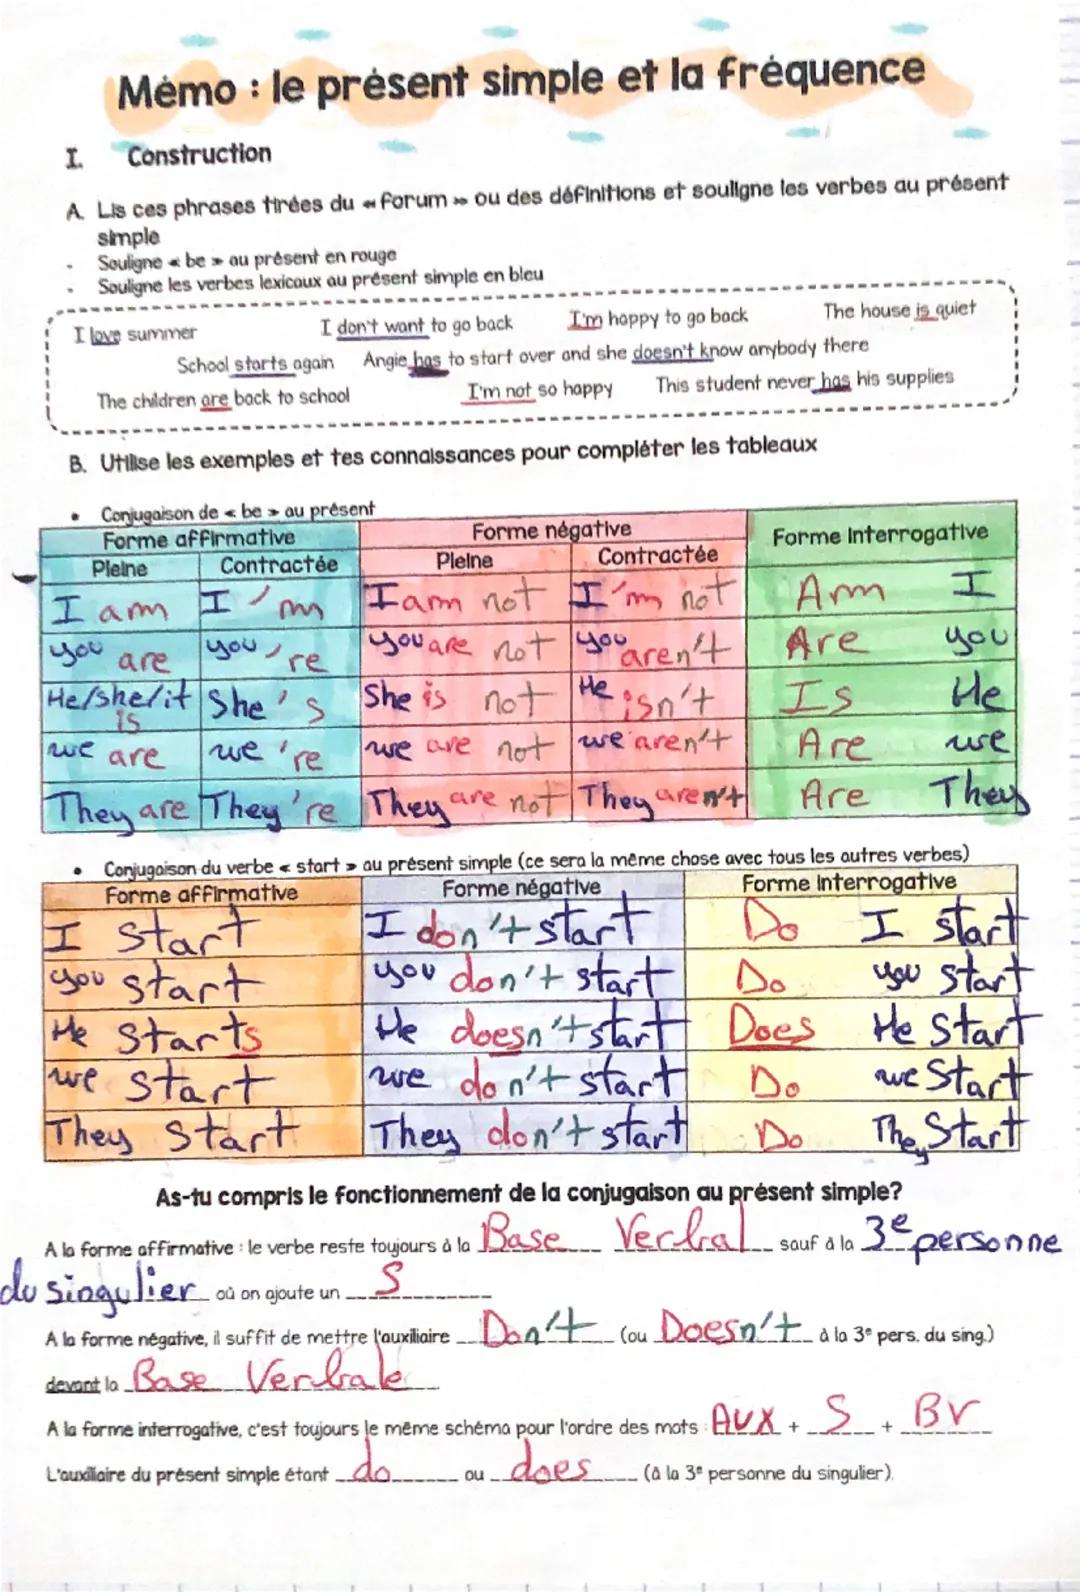 Mémo : le présent simple et la fréquence
I. Construction
A. Lis ces phrases tirées du « forum » ou des définitions et souligne les verbes au présent
simple
- Souligne « be » au présent en rouge
- Souligne les verbes lexicaux au présent simple en bleu
I love summer I don't want to go back I'm happy to go back The house is quiet
School starts again Angie has to start over and she doesn't know anybody there
The children are back to school I'm not so happy This student never has his supplies
B. Utilise les exemples et tes connaissances pour compléter les tableaux
• Conjugaison de « be » au présent
Forme affirmative Forme négative Forme Interrogative
Pleine Contractée Pleine Contractée
I am I'm I am not I'm not Am I
you are you're you are not you aren't Are you
He/she/it is She's She is not He isn't Is He
we are we're we are not we aren't Are we
They are They're They are not They aren't Are They
• Conjugaison du verbe « start » au présent simple (ce sera la même chose avec tous les autres verbes)
Forme affirmative Forme négative Forme Interrogative
I start I don't start Do I start
you start you don't start Do you start
He starts He doesn't start Does He start
we start we don't start Do we start
They start They don't start Do They start
As-tu compris le fonctionnement de la conjugaison au présent simple?
A la forme affirmative : le verbe reste toujours à la Base Verbal sauf à la 3e personne
du singulier où on ajoute un S
A la forme négative, il suffit de mettre l'auxiliaire Don't (ou Doesn't à la 3e pers. du sing.)
devant la Base Verbale
A la forme interrogative, c'est toujours le même schéma pour l'ordre des mots : AUX + S + BV
L'auxiliaire du présent simple étant do ou does (à la 3e personne du singulier).